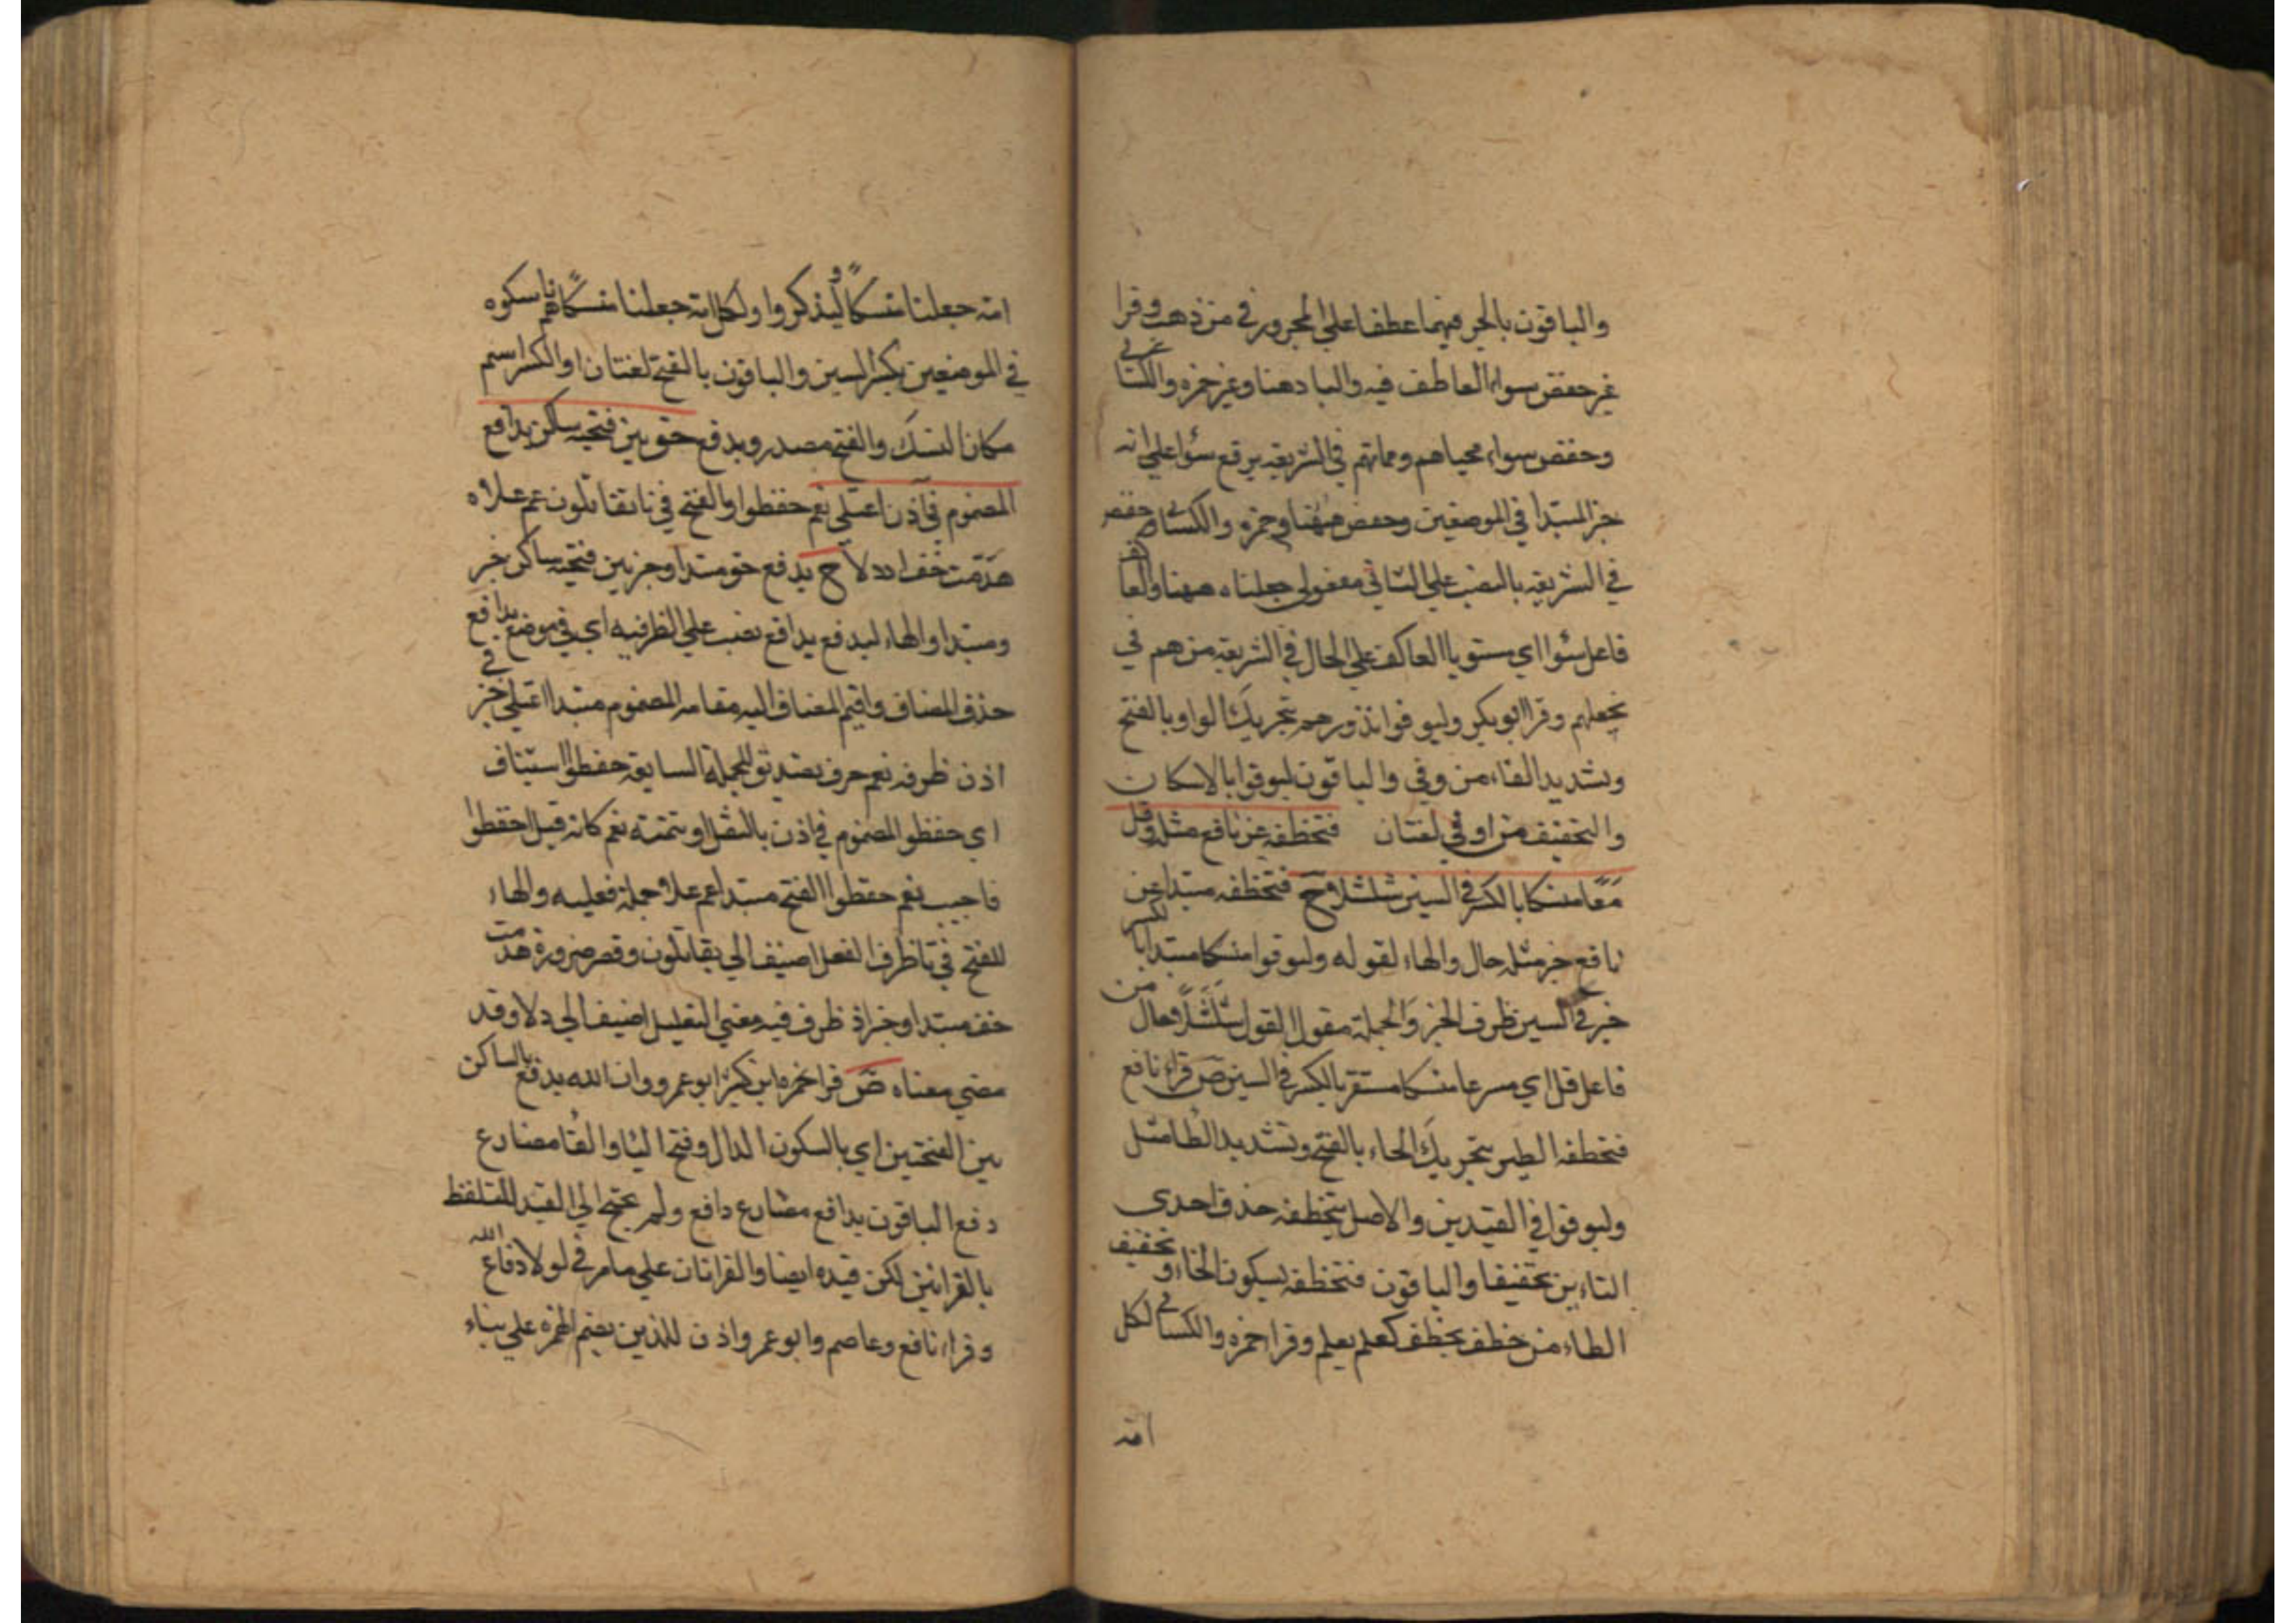 والباقون بالجر فيهما عطفا على المجرور في من ذهب وقرا
غير حفص سواء العاطف فيه والباد هنا وغير حمزه والكسائي
وحفص سواء محياهم ومماتهم في الشريعه برفع سؤا على انه
خبر المبتدا في الموضعين وحفص ههنا وحمزه والكسائي وحفص
في الشريعه بالنصب على الثاني مفعولي جعلناه ههنا والعاكف
فاعل سؤا اي مستويا العاكف على الحال في الشريعه من هم في
نجعلهم وقرا ابو بكر وليوفوا نذورهم بتحريك الواو بالفتح
وتشديد الفاء من وفى والباقون ليوفوا بالاسكان
والتخفيف من اوفى لغتان فتخطفه عن نافع مثله وقل
معًا منسكا بالكسر في السين شلشلا ح فتخطفه مبتدا عن
نافع خبر مثله حال والهاء لقوله وليوفوا منسكا مبتدا بالكسر
خبر في السين ظرف الخبر والجملة مقول القول شلشلا حال من
فاعل قل اي مسرعا منسكا مستقر بالكسر في السين ص قراء نافع
فتخطفه الطير بتحريك الخاء بالفتح وتشديد الطا مثل
وليوفوا في القيدين والاصل تتخطفه حذف احدى
التاءين تخفيفا والباقون فتخطفه بسكون الخاء وتخفيف
الطاء من خطف يخطف كعلم يعلم وقرا حمزه والكسائي لكل
امة
امة جعلنا منسكًا ليذكروا ولكل امة جعلنا منسكًا هم ناسكوه
في الموضعين بكسر السين والباقون بالفتح لغتان او الكسر اسم
مكان النسك والفتح مصدر ويدفع حق بين فتحيه ساكن يدافع
المضموم في اذن اعتلى نعم حفظوا والفتح في تا تقاتلون عم علاه
هدمت خف اذ دلا ح يدفع حق مبتدا وخبر بين فتحيه ساكن خبر
ومبتدا والهاء ليدفع يدافع نصب على الظرفيه اي في موضع يدافع
حذف المضاف واقيم المضاف اليه مقامه المضموم مبتدا اعتلى خبر في
اذن ظرفه نعم حرف تصديق للجملة السابقه حفظوا استيناف
اي حفظوا المضموم في اذن بالنقل او تتمته نعم كانه قيل احفظوا
فاجيب نعم حفظوا الفتح مبتدا عم علاه جملة فعليه والهاء
للفتح في تا ظرف الفعل اضيف الى يقاتلون وقصر ضرورة هدمت
خف مبتدا وخبر اذ ظرف فيه معنى التعليل اضيف الى دلا وقد
مضى معناه ص قرا حمزه ابن كثير ابو عمرو وان الله يدفع بالساكن
بين الفتحتين اي بالسكون الدال وفتح اليا والفا مضارع
دفع الباقون يدافع مضارع دافع ولم يحتج الى القيد للتلفظ
بالقرائتين لكن قيده ايضا والقراتان على ما مر في لولا دفاع الله
وقراء نافع وعاصم وابو عمرو اذن للذين بضم الهمزه على بناء